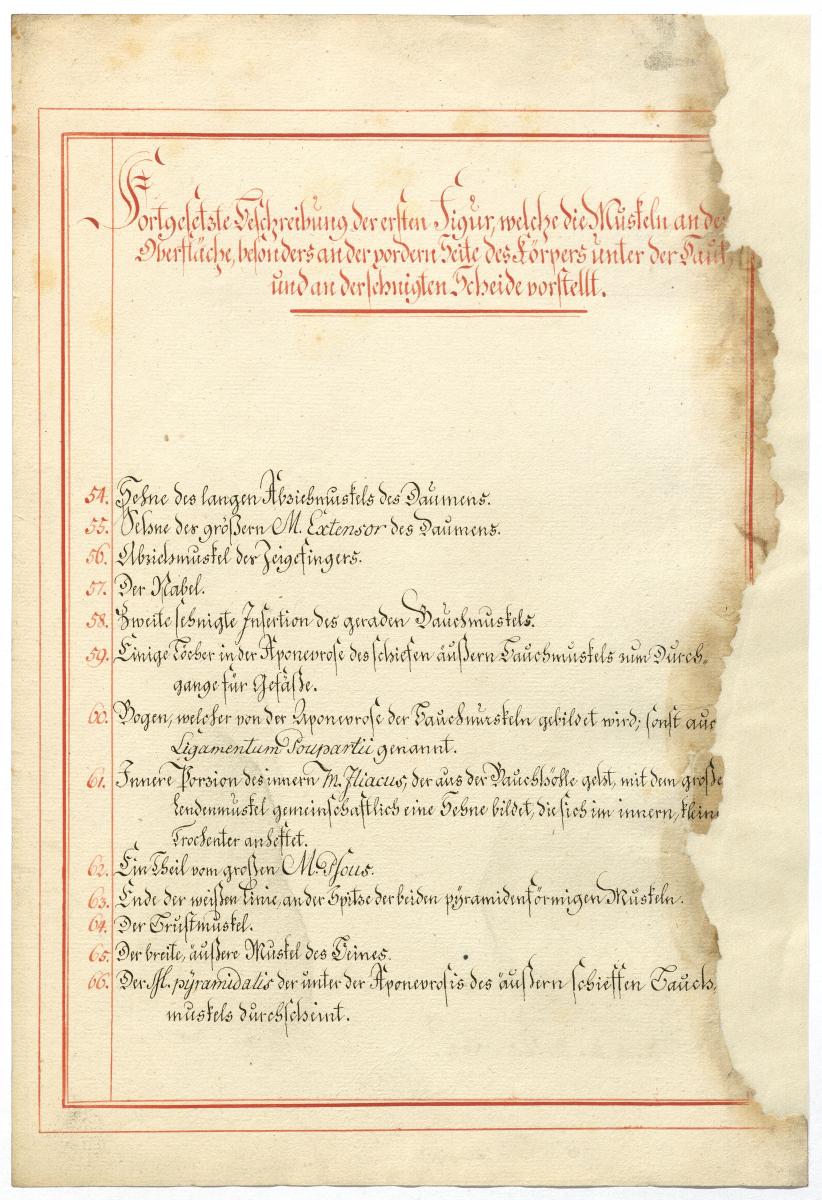 Fortgesetzte Beschreibung der ersten Figur, welche die Muskeln an de
Oberfläche, besonders an der vordern Seite des Körpers unter der Haut,
und an der sehnigten Scheide vorstellt.
54. Sehne des langen Abziehmuskels des Daumens.
55. Sehne des größern M. Extensor des Daumens.
56. Abziehmuskel der Zeigefingers.
57. Der Nabel.
58. Zweite sehnigte Insertion des geraden Bauchmuskels.
59. Einige Löcher in der Aponevrose des schiefen äußern Bauchmuskels zum Durch=
gange für Gefäße.
60. Bogen, welcher von der Aponevrose der Bauchmuskeln gebildet wird; sonst auc
Ligamentum Poupartii genannt.
61. Innere Porzion des innern M. Iliacus, der aus der Bauchhöhle geht, mit dem große
Lendenmuskel gemeinschaftlich eine Sehne bildet, die sich im innern, klein
Trochenter anheftet.
62. Ein Theil vom großen M. Psous.
63. Ende der weißen Linie, an der Spitze der beiden pyramidenförmigen Muskeln.
64. Der Brustmuskel.
65. Der breite, äußere Muskel des Beines.
66. Der M. pÿramidalis der unter der Aponevrosis des äußern schieffen Bauch,
muskels durchscheint.